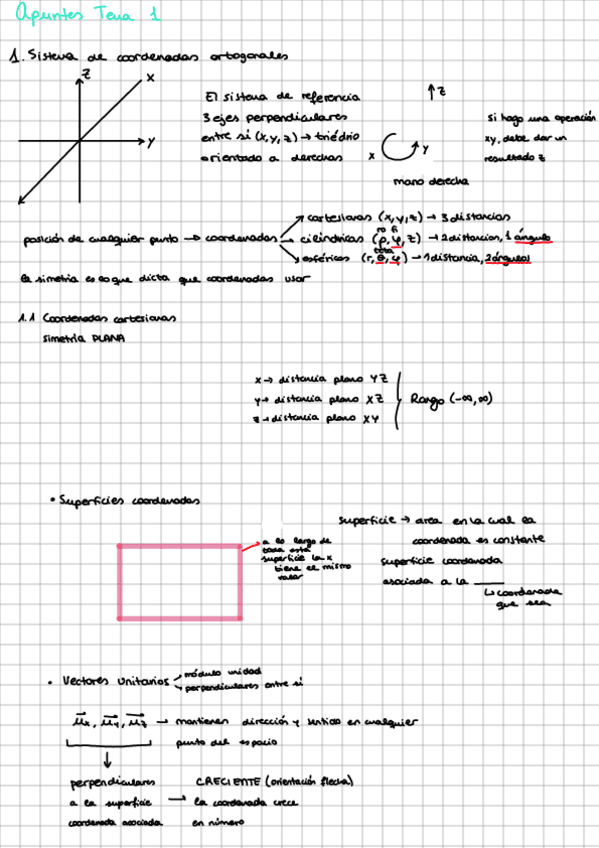 Apuntes Tema 1
1. Sistema de coordenadas ortogonales
z
x
y
El sistema de referencia
3 ejes perpendiculares
entre sí (x,y,z) → triédrio
orientado a derechas
↑z
x
y
mano derecha
Si hago una operación
xy, debe dar un
resultado z
posición de cualquier punto → coordenadas
→ cartesianas (x,y,z) → 3 distancias
ro fi
→ cilíndricas (ρ,φ,z) → 2 distancias, 1 ángulo
→ esféricas (r,θ,φ) → 1 distancia, 2 ángulos
la simetría es lo que dicta que coordenadas usar
1.1 Coordenadas cartesianas
simetría PLANA
x → distancia plano YZ
y → distancia plano XZ
z → distancia plano XY
Rango (-∞,∞)
• Superficies coordenadas
a lo largo de
toda esta
superficie la x
tiene el mismo
valor
superficie → area en la cual la
coordenada es constante
superficie coordenada
asociada a la ____
↳ coordenada
que sea
• Vectores unitarios
módulo unidad
perpendiculares entre si
u⃗x, u⃗y, u⃗z → mantienen dirección y sentido en cualquier
punto del espacio
perpendiculares
a la superficie
coordenada asociada
→
CRECIENTE (orientación flecha)
la coordenada crece
en número